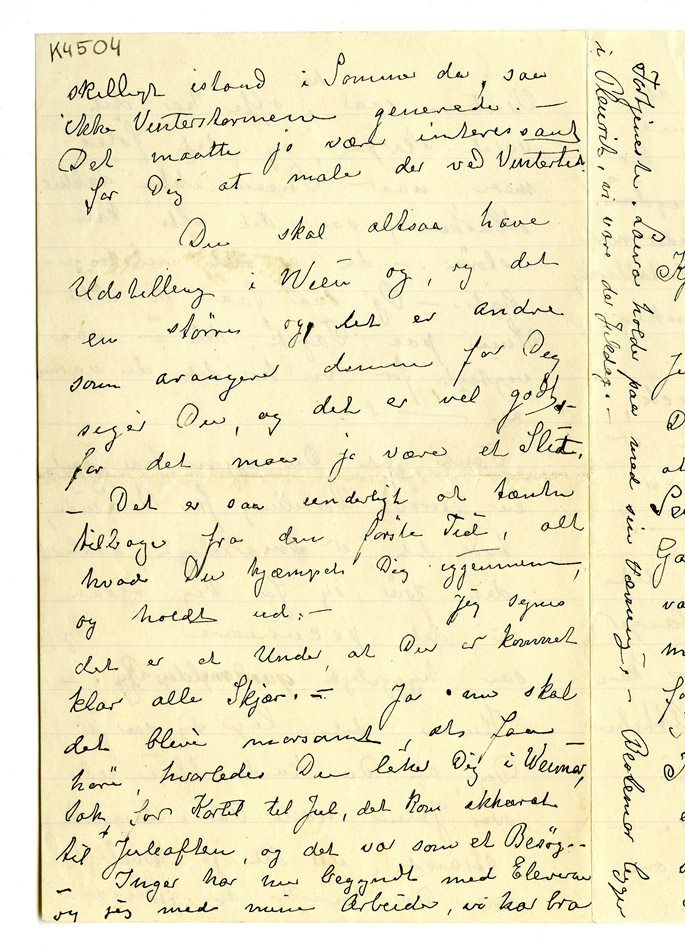 K4504
skelligt istand i Sommer da, saa
ikke Vinterstormene generede. —
Det maatte jo være interessant
for Dig at male der ved Vintertid.
Du skal altsaa have
Udstilling i Wein og, og det
en större og, det er andre
som arangerer denne for Deg
seger Du, og det er vel godt, —
for det maa jo være et Slit.
— Det er saa underligt at tænke
tilbage fra den förste Tid, alt
hvad Du kjæmpet Dig iggennem,
og holdt ud: — Jeg synes
det er et Under, at Du er kommet
klar alle Skjær. — Ja nu skal
det bleve morsomt, at faa
höre, hvorledes Du liker Dig i Weimar,
Tak for Kortet til Jul, det kom akkurat
til Juleaften, og det var som et Besög. —
— Inger har nu begyndt med Eleverne
og jeg med mine Arbeider, vi har bra
Fortjeneste. Laura holder paa med sin Vævning. — Bestemor ligger
i Pleurit, vi vare der Juledag. —